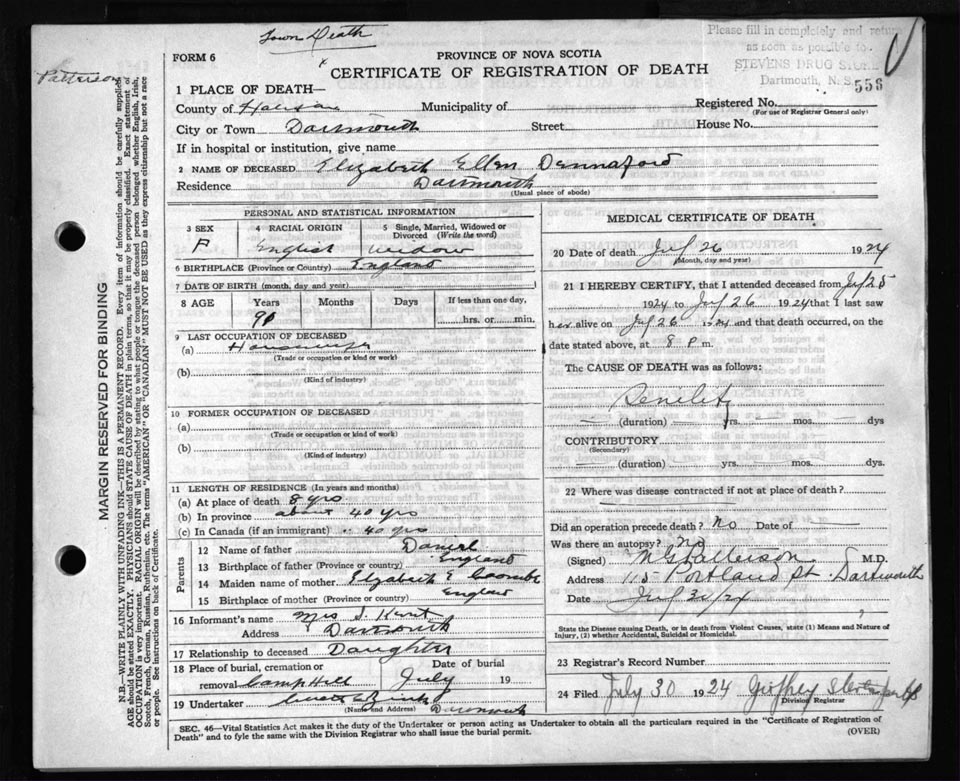 Town Death
Please fill in completely and return
as soon as possible to
STEVENS DRUG STORE
Dartmouth, N.S.
556
Patterson
FORM 6
PROVINCE OF NOVA SCOTIA
CERTIFICATE OF REGISTRATION OF DEATH
1 PLACE OF DEATH—
County of Halifax Municipality of Registered No.
(For use of Registrar General only)
City or Town Dartmouth Street House No.
If in hospital or institution, give name
2 NAME OF DECEASED Elizabeth Ellen Dennaford
Residence Dartmouth
(Usual place of abode)
PERSONAL AND STATISTICAL INFORMATION
3 SEX 4 RACIAL ORIGIN 5 Single, Married, Widowed or Divorced (Write the word)
F English Widow
6 BIRTHPLACE (Province or Country) England
7 DATE OF BIRTH (month, day and year)
8 AGE Years Months Days If less than one day,
hrs. or min.
9 LAST OCCUPATION OF DECEASED
(a) Housewife
(Trade or occupation or kind of work)
(b)
(Kind of industry)
10 FORMER OCCUPATION OF DECEASED
(a)
(Trade or occupation or kind of work)
(b)
(Kind of industry)
11 LENGTH OF RESIDENCE (In years and months)
(a) At place of death 8 yrs
(b) In province about 40 yrs
(c) In Canada (if an immigrant) " 40 yrs
Parents
12 Name of father Daniel
13 Birthplace of father (Province or Country) England
14 Maiden name of mother Elizabeth E Coombs
15 Birthplace of mother (Province or Country) England
16 Informant's name Mrs J. Kent
Address Dartmouth
17 Relationship to deceased Daughter
18 Place of burial, cremation or Date of burial
removal Camp Hill July 19
19 Undertaker
(Name and Address) Dartmouth
MEDICAL CERTIFICATE OF DEATH
20 Date of death July 26 1924
(Month, day and year)
21 I HEREBY CERTIFY, that I attended deceased from July 25
1924 to July 26 1924 that I last saw
her alive on July 26 1924 and that death occurred, on the
date stated above, at 8 P m.
The CAUSE OF DEATH was as follows:
Senility
(duration) yrs. mos. dys
CONTRIBUTORY
(Secondary)
(duration) yrs. mos. dys.
22 Where was disease contracted if not at place of death?
Did an operation precede death? No Date of
Was there an autopsy? No
(Signed) Patterson M.D.
Address 115 Portland St. Dartmouth
Date
State the Disease causing Death, or in death from Violent Causes, state (1) Means and Nature of
Injury, (2) whether Accidental, Suicidal or Homicidal.
23 Registrar's Record Number
24 Filed July 30 1924 Geoffrey Stevens
Division Registrar
SEC. 46—Vital Statistics Act makes it the duty of the Undertaker or person acting as Undertaker to obtain all the particulars required in the "Certificate of Registration of
Death" and to fyle the same with the Division Registrar who shall issue the burial permit.
(OVER)
MARGIN RESERVED FOR BINDING
N.B.—WRITE PLAINLY WITH UNFADING INK—THIS IS A PERMANENT RECORD. Every item of information should be carefully supplied.
AGE should be stated EXACTLY. PHYSICIANS should STATE CAUSE OF DEATH in plain terms, so that it may be properly classified. Exact statement of
OCCUPATION is very important. RACIAL ORIGIN will be described by stating to what people or tongue the deceased person belonged whether English, Irish,
Scotch, French, German, Russian, Ruthenian, etc. The terms "AMERICAN" OR "CANADIAN" MUST NOT BE USED as they express citizenship but not a race
or people. See instructions on back of Certificate.